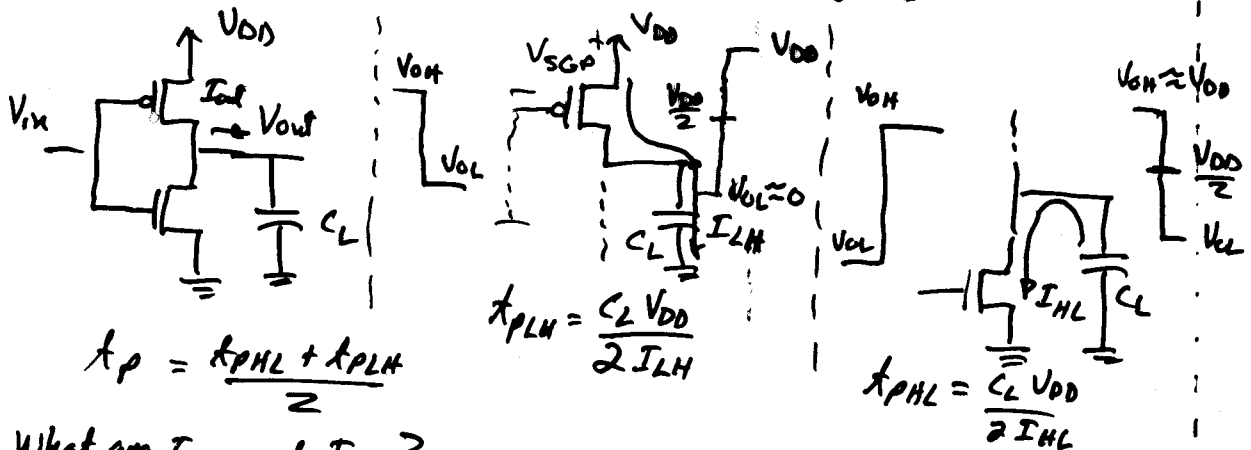 V_DD
V_IN
I_out
V_out
C_L
t_P = (t_PHL + t_PLH) / 2
V_OH
V_OL
V_SGP +
V_DD
V_DD
V_DD/2
V_OL ≈ 0
C_L
I_LH
t_PLH = C_L V_DD / 2 I_LH
V_OH
V_OL
I_HL
C_L
V_OH ≈ V_DD
V_DD/2
V_OL
t_PHL = C_L V_DD / 2 I_HL
What are